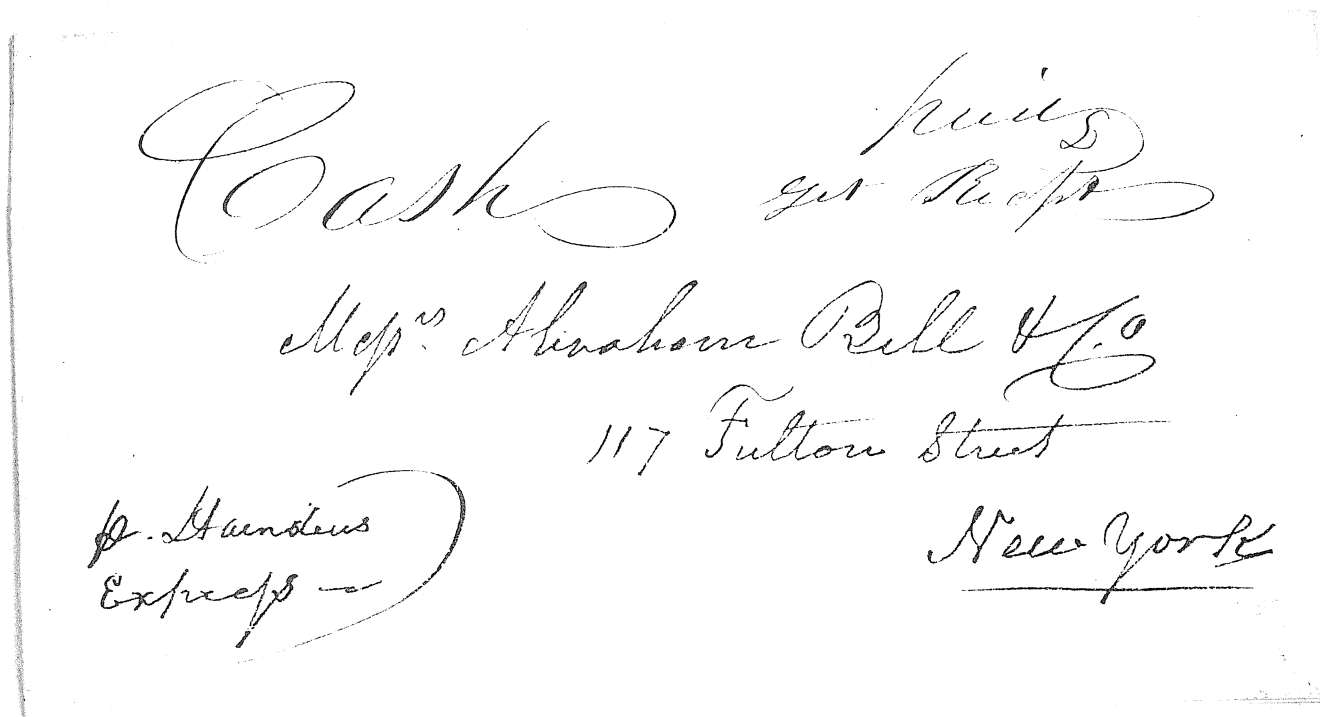 Cash
paid
Get Recpt
Messrs. Abraham Bell & Co
117 Fulton Street
New York
p. Harndens
Express